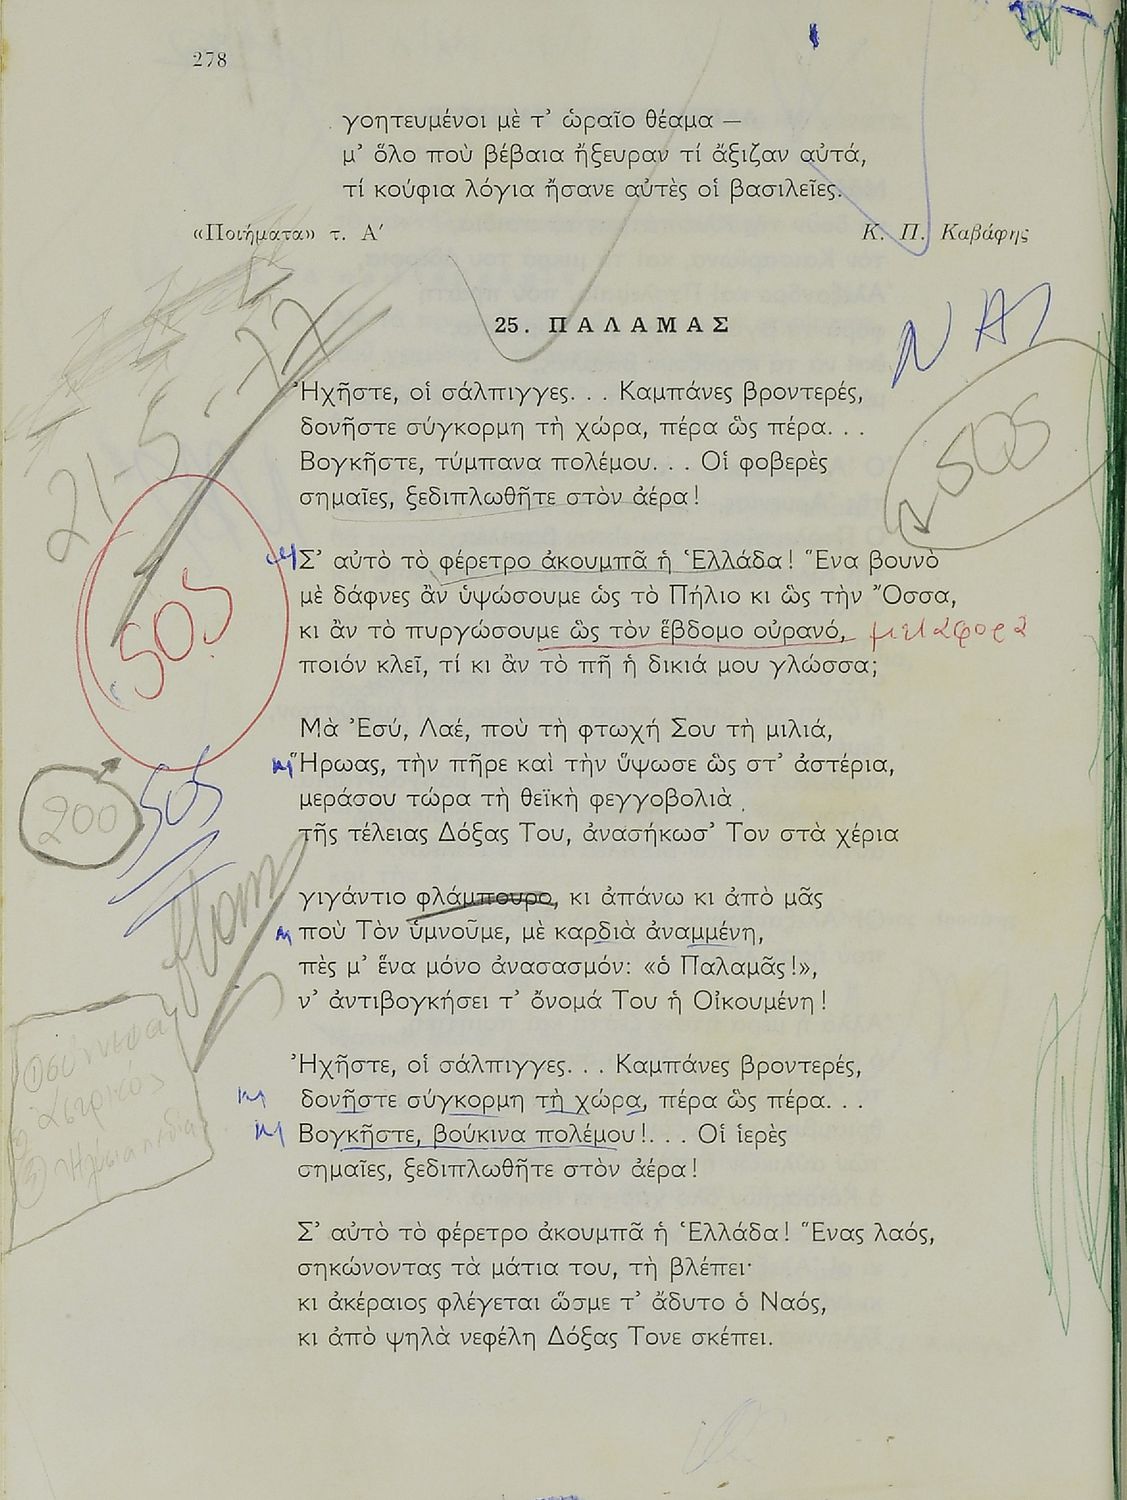 278
γοητευμένοι μὲ τ' ὡραῖο θέαμα —
μ' ὅλο ποὺ βέβαια ἤξευραν τί ἄξιζαν αὐτά,
τί κούφια λόγια ἤσανε αὐτὲς οἱ βασιλεῖες.
«Ποιήματα» τ. Α΄ Κ. Π. Καβάφης
25. ΠΑΛΑΜΑΣ
ΝΑΙ
21-5-77
Ἠχῆστε, οἱ σάλπιγγες. . . Καμπάνες βροντερές,
δονῆστε σύγκορμη τὴ χώρα, πέρα ὣς πέρα. . .
SOS
Βογκῆστε, τύμπανα πολέμου. . . Οἱ φοβερὲς
σημαῖες, ξεδιπλωθῆτε στὸν ἀέρα!
Σ' αὐτὸ τὸ φέρετρο ἀκουμπᾶ ἡ Ἑλλάδα! Ἕνα βουνὸ
μὲ δάφνες ἂν ὑψώσουμε ὡς τὸ Πήλιο κι ὣς τὴν Ὄσσα,
SOS
κι ἂν τὸ πυργώσουμε ὣς τὸν ἕβδομο οὐρανό, μεταφορα
ποιόν κλεῖ, τί κι ἂν τὸ πῆ ἡ δικιά μου γλώσσα;
Μὰ Ἐσύ, Λαέ, ποὺ τὴ φτωχή Σου τὴ μιλιά,
Ἥρωας, τὴν πῆρε καὶ τὴν ὕψωσε ὣς στ' ἀστέρια,
SOS
200
μεράσου τώρα τὴ θεϊκὴ φεγγοβολιὰ
τῆς τέλειας Δόξας Του, ἀνασήκωσ' Τον στὰ χέρια
γιγάντιο φλάμπουρο, κι ἀπάνω κι ἀπὸ μᾶς
ποὺ Τὸν ὑμνοῦμε, μὲ καρδιὰ ἀναμμένη,
πὲς μ' ἕνα μόνο ἀνασασμόν: «ὁ Παλαμᾶς!»,
ν' ἀντιβογκήσει τ' ὄνομά Του ἡ Οἰκουμένη!
Ἠχῆστε, οἱ σάλπιγγες. . . Καμπάνες βροντερές,
δονῆστε σύγκορμη τὴ χώρα, πέρα ὣς πέρα. . .
Βογκῆστε, βούκινα πολέμου!. . . Οἱ ἱερὲς
σημαῖες, ξεδιπλωθῆτε στὸν ἀέρα!
Σ' αὐτὸ τὸ φέρετρο ἀκουμπᾶ ἡ Ἑλλάδα! Ἕνας λαός,
σηκώνοντας τὰ μάτια του, τὴ βλέπει·
κι ἀκέραιος φλέγεται ὥσμε τ' ἄδυτο ὁ Ναός,
κι ἀπὸ ψηλὰ νεφέλη Δόξας Τονε σκέπει.